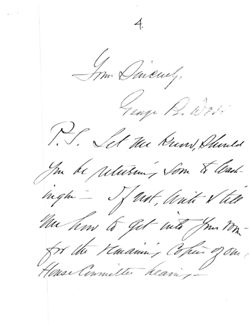 4.
Yours Sincerely,
George B.
P.S. Let me know, should
you be returning soon to Wash-
ington — If not, write & tell
me how to get into your room
for the remaining copies of our
House Committee hearing —